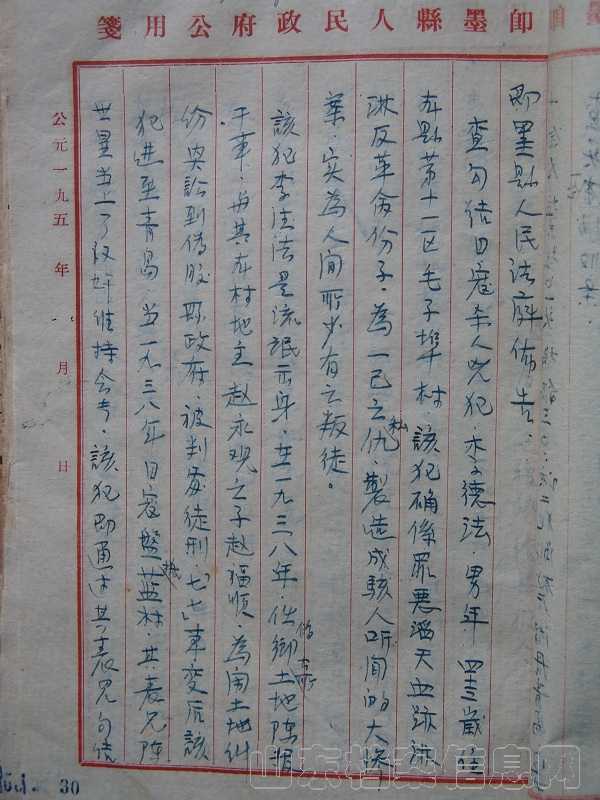 即墨縣人民政府公用箋
即墨縣人民法庭佈告
查勾結日寇杀人兇犯李德法男年四十三歲住
本縣第十一区毛子埠村該犯确係罪恶滔天血跡淋
淋反革命份子為一己之私仇製造成駭人听闻的大慘
案实為人间所少有之叛徒。
該犯李法是流氓出身在一九三八年任鄉土地陈报
干事与其本村地主赵永观之子赵福順為闹土地纠
纷央訟到偽胶县政府被判处徒刑七七事变后該
犯进至青島当一九三八年日寇盤据蓝村其表兄陈
世星当上了汉奸維持会長該犯即通过其表兄勾结
公元一九五年月日
30
山东档案信息网